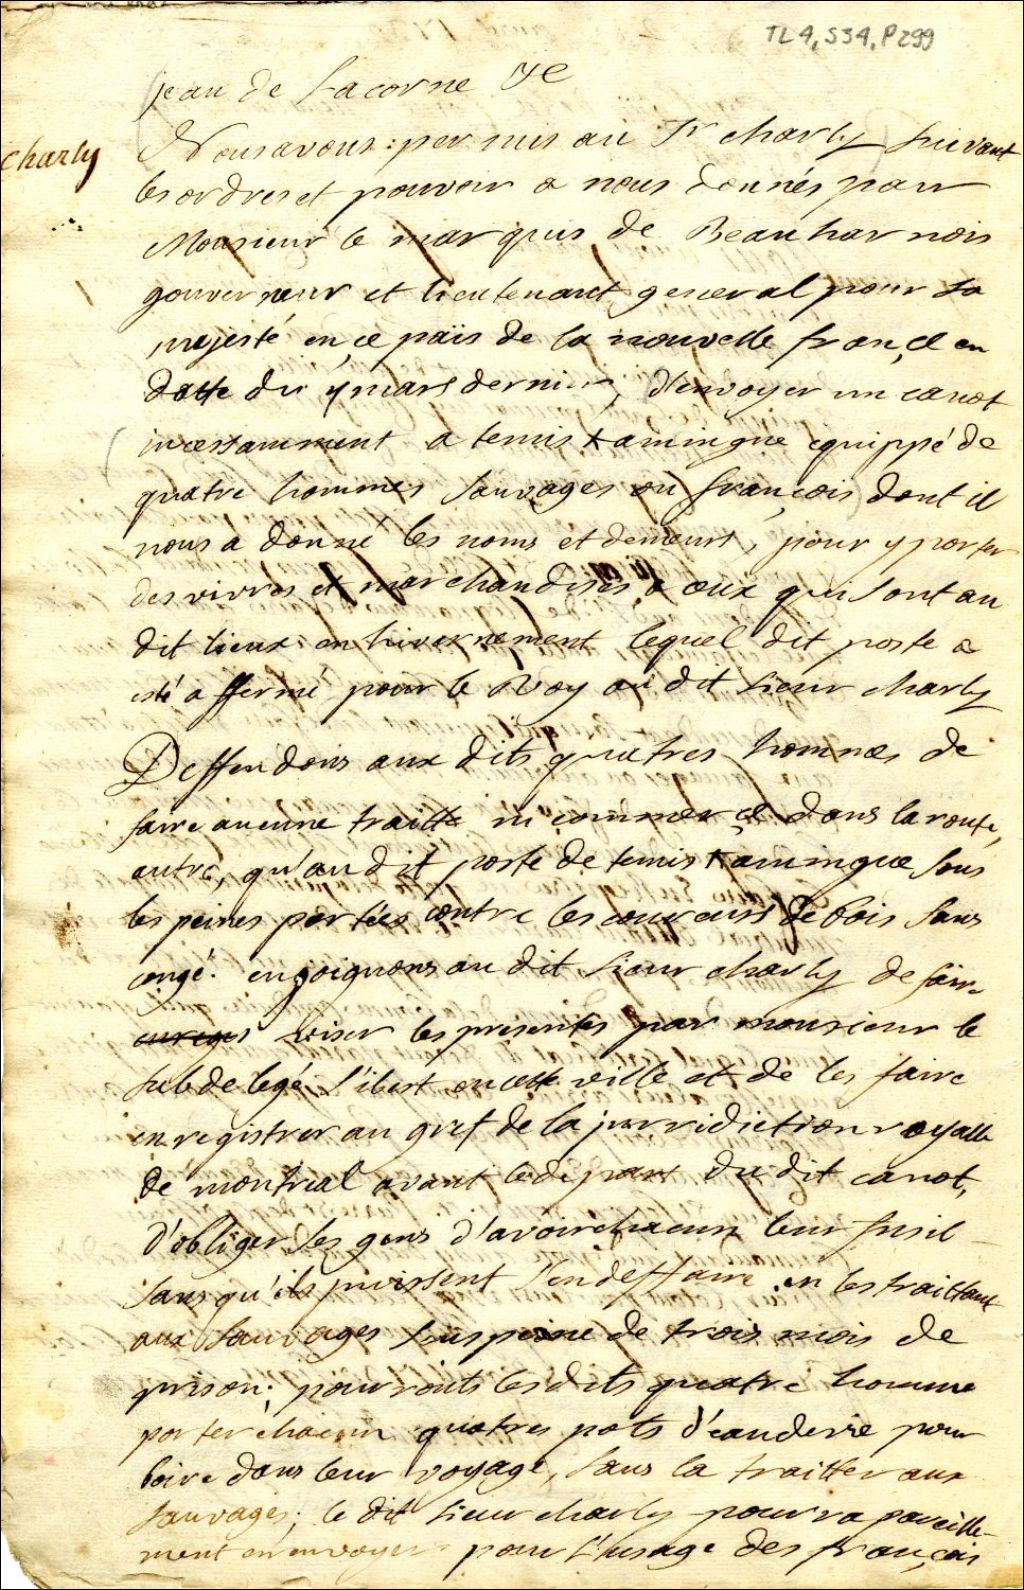 TL4, S34, P299
jean de Lacorne &c
charly
Nous avons : permis au Sr charly suivant
les ordres et pouvoir a nous donnés par
Monsieur le marquis de Beauharnois
gouverneur et lieutenant general pour sa
majesté en çe païs de la nouvelle françe en
datte du mars dernier, d'envoyer un canot
incessamment a temiskamingue equippé de
quatre hommes sauvages ou françois dont il
nous a donné les noms et demeurs, pour y porter
des vivres et marchandises a ceux qui sont au
dit lieux en hivernement lequel dit poste a
esté affermé pour le Roy au dit sieur charly
Deffendons aux dits quatres hommes de
faire aucune traitte ni commerçe dans la route,
autre, qu'au dit poste de temiskamingue sous
les peines portées contre les coureurs de bois sans
congé. enjoignons au dit sieur charly de faire
viser les presentes par monsieur le
subdelegé s'il est en cette ville et de les faire
enregistrer au gref de la jurridiction royalle
de montreal avant le depart du dit canot,
d'obliger ses gens d'avoir chacun leur fusil
sans qu'ils puissent s'en deffaire en les traittant
aux sauvages sus peine de trois mois de
prison; pourronts lesdits quatre homme
porter chacun quatres pots d'eaudevie pour
boire dans leur voyage, sans la traitter aux
sauvages; le dit sieur charly pourra pareille-
ment en envoyer pour l'husage des françois